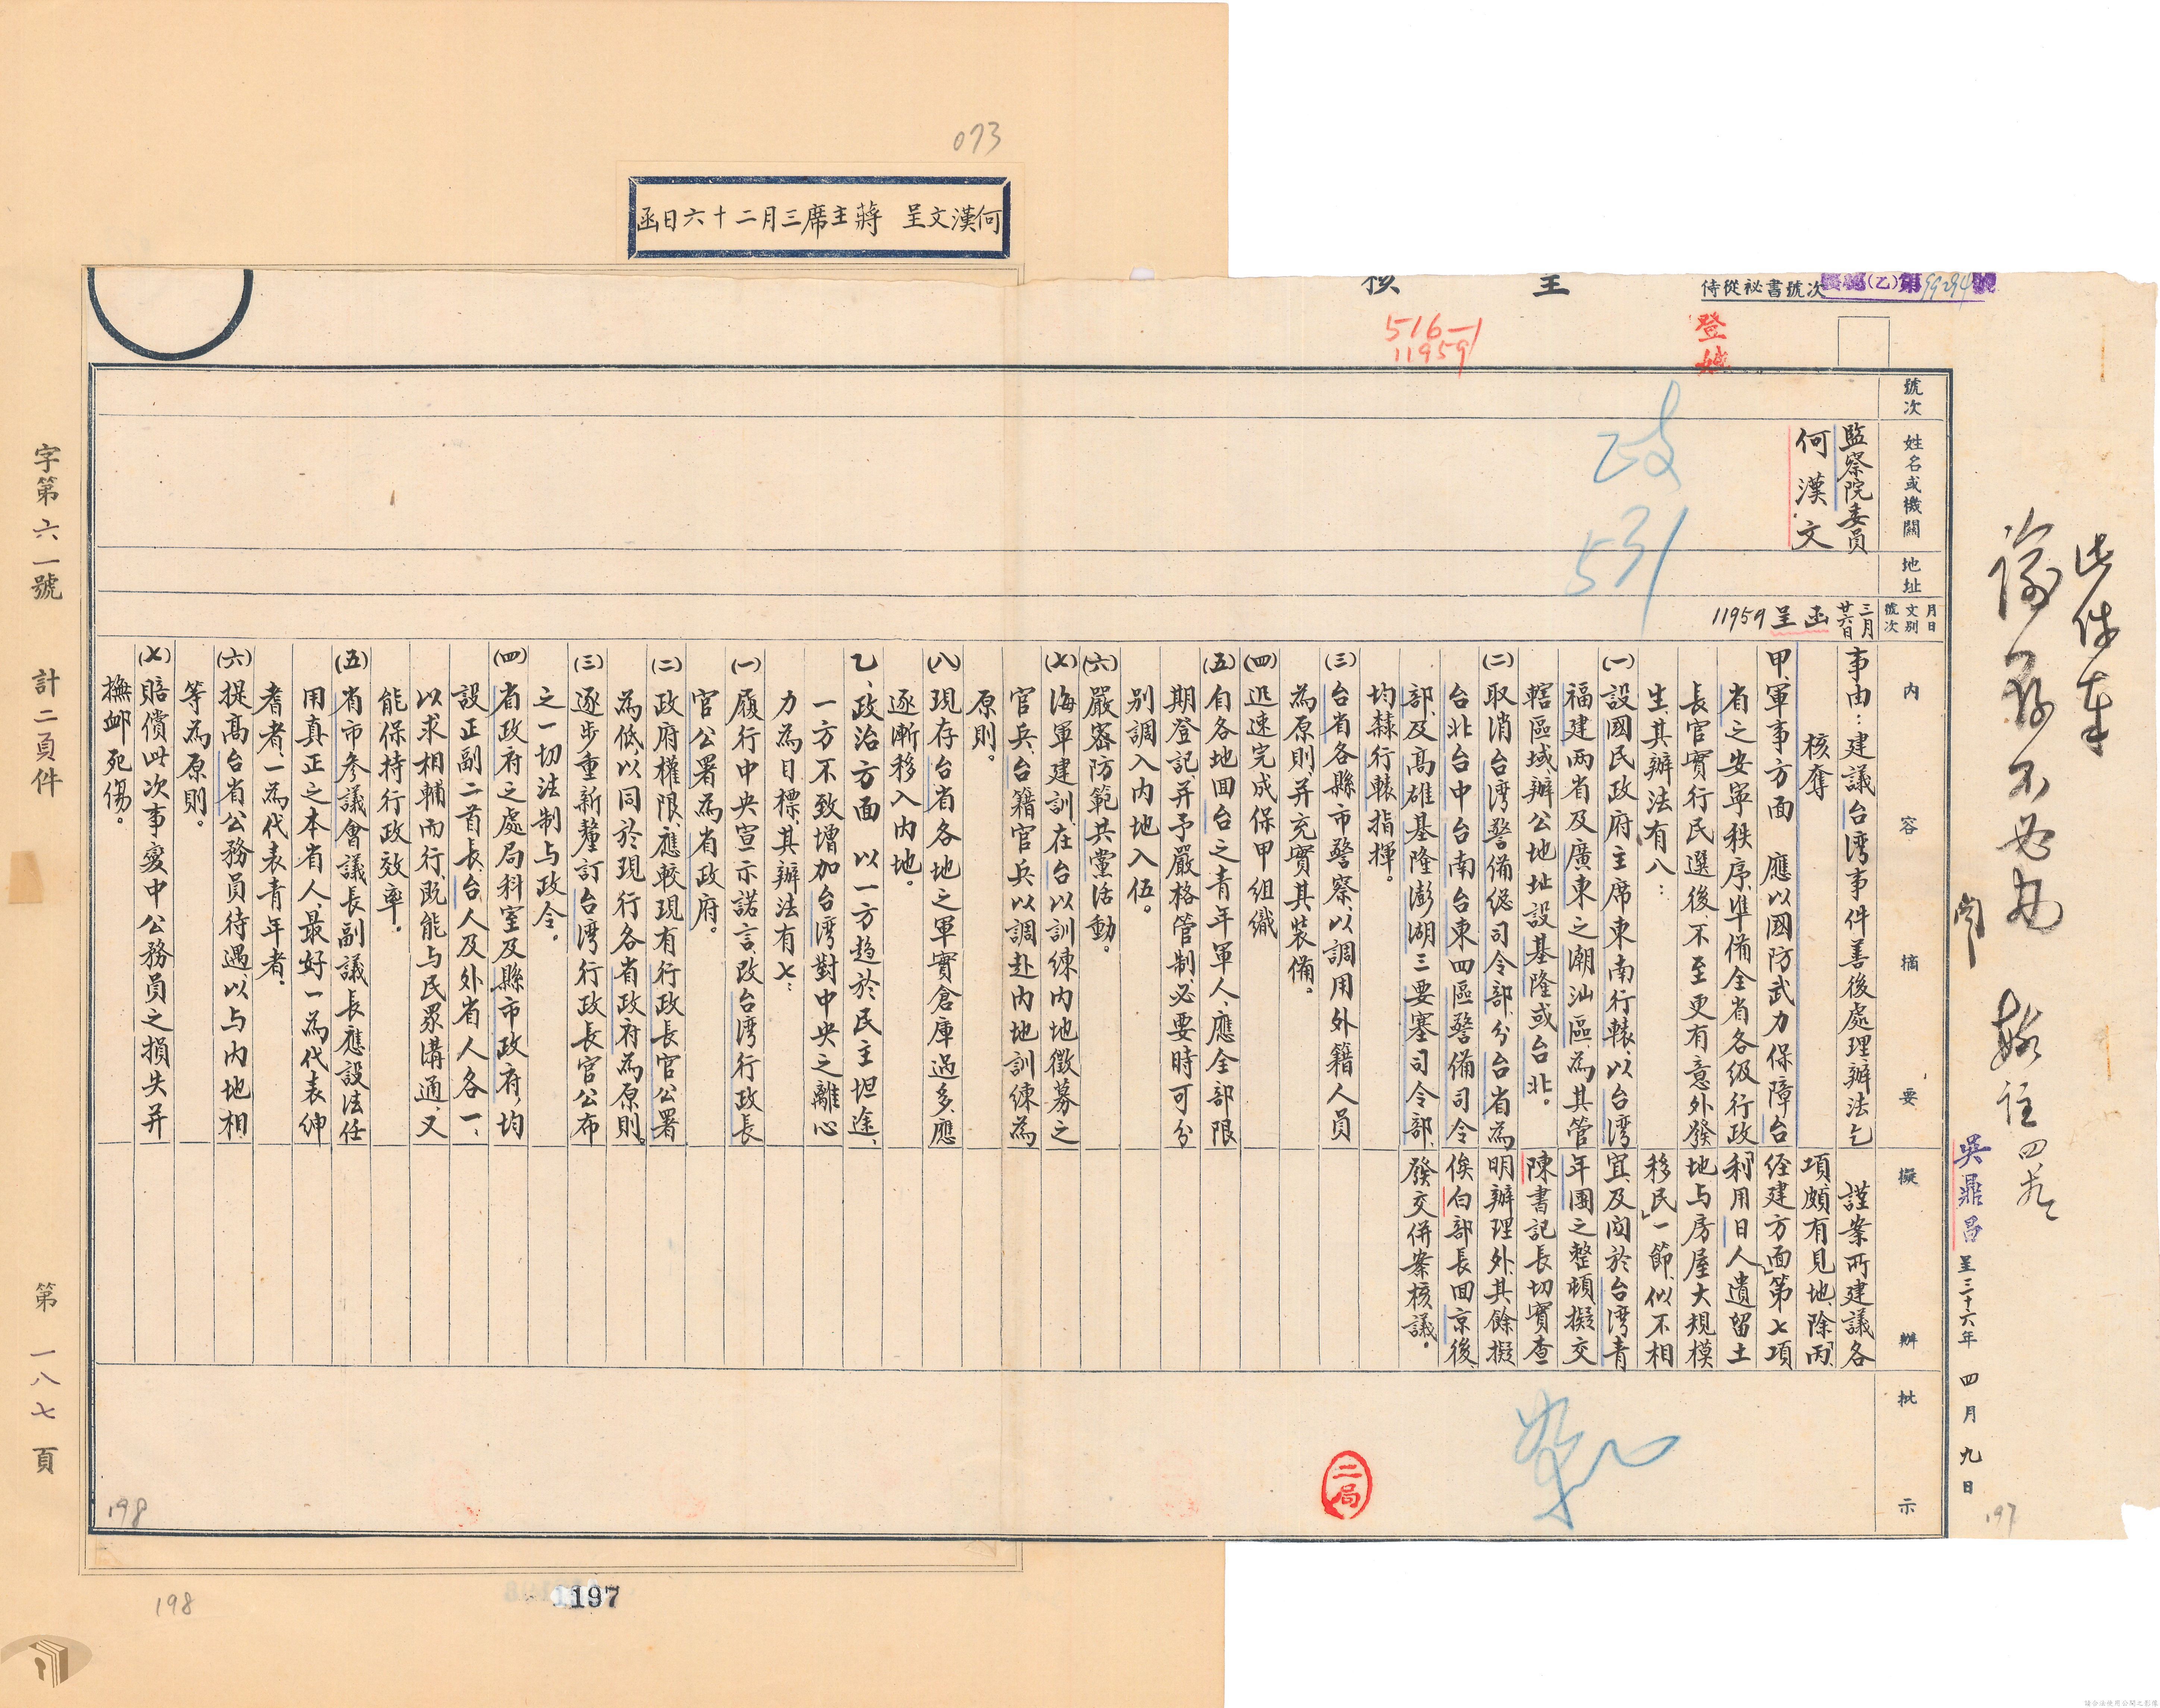 073
何漢文呈 蔣主席三月二十六日函
侍從祕書號次
(乙)第99294號
登
516-1
11959
政
531
此件奉
諭
閱
吳鼎昌 呈三十六年 四月 九日
197
號次
姓名或機關
地址
月日
文別
號次
內容摘要
擬辦
批示
監察院委員
何漢文
三月
廿六日
函呈 11959
事由：建議台湾事件善後處理辦法乞
核奪
甲、軍事方面 應以國防武力保障台
省之安寧秩序、準備全省各級行政
長官實行民選後、不至更有意外發
生、其辦法有八：
(一)設國民政府主席東南行轅、以台湾
福建兩省及廣東之潮汕區、為其管
轄區域、辦公地址設基隆或台北。
(二)取消台湾警備總司令部、分台省為
台北台中台南台東四區警備司令
部、及高雄基隆澎湖三要塞司令部、
均隸行轅指揮。
(三)台省各縣市警察、以調用外籍人員
為原則、并充實其裝備。
(四)迅速完成保甲組織
(五)自各地回台之青年軍人、應全部限
期登記、并予嚴格管制、必要時可分
別調入內地入伍。
(六)嚴密防範共黨活動。
(七)海軍建訓、在台以訓練內地徵募之
官兵、台籍官兵以調赴內地訓練為
原則。
(八)現存台省各地之軍實倉庫過多、應
逐漸移入內地。
乙、政治方面 以一方趨於民主坦途、
一方不致增加台湾對中央之離心
力為目標、其辦法有七：
(一)履行中央宣示諾言、改台湾行政長
官公署為省政府。
(二)政府權限、應較現有行政長官公署
為低、以同於現行各省政府為原則。
(三)逐步重新釐訂台湾行政長官公布
之一切法制与政令。
(四)省政府之處局科室及縣市政府、均
設正副二首長、台人及外省人各一、
以求相輔而行、既能与民眾溝通、又
能保持行政效率。
(五)省市參議會議長副議長應設法任
用真正之本省人、最好一為代表紳
耆者、一為代表青年者、
(六)提高台省公務員待遇、以与內地相
等為原則。
(七)賠償此次事變中公務員之損失并
撫卹死傷。
謹案所建議各
項頗有見地、除「丙、
经建方面」第七項
「利用日人遺留土
地与房屋大規模
移民」一節、似不相
宜、及関於台湾青
年團之整頓擬交
陳書記長切實查
明辦理外、其餘擬
俟白部長回京後、
發交併案核議。
二局
字第六一號 計二頁件 第一八七頁
198
198
1197